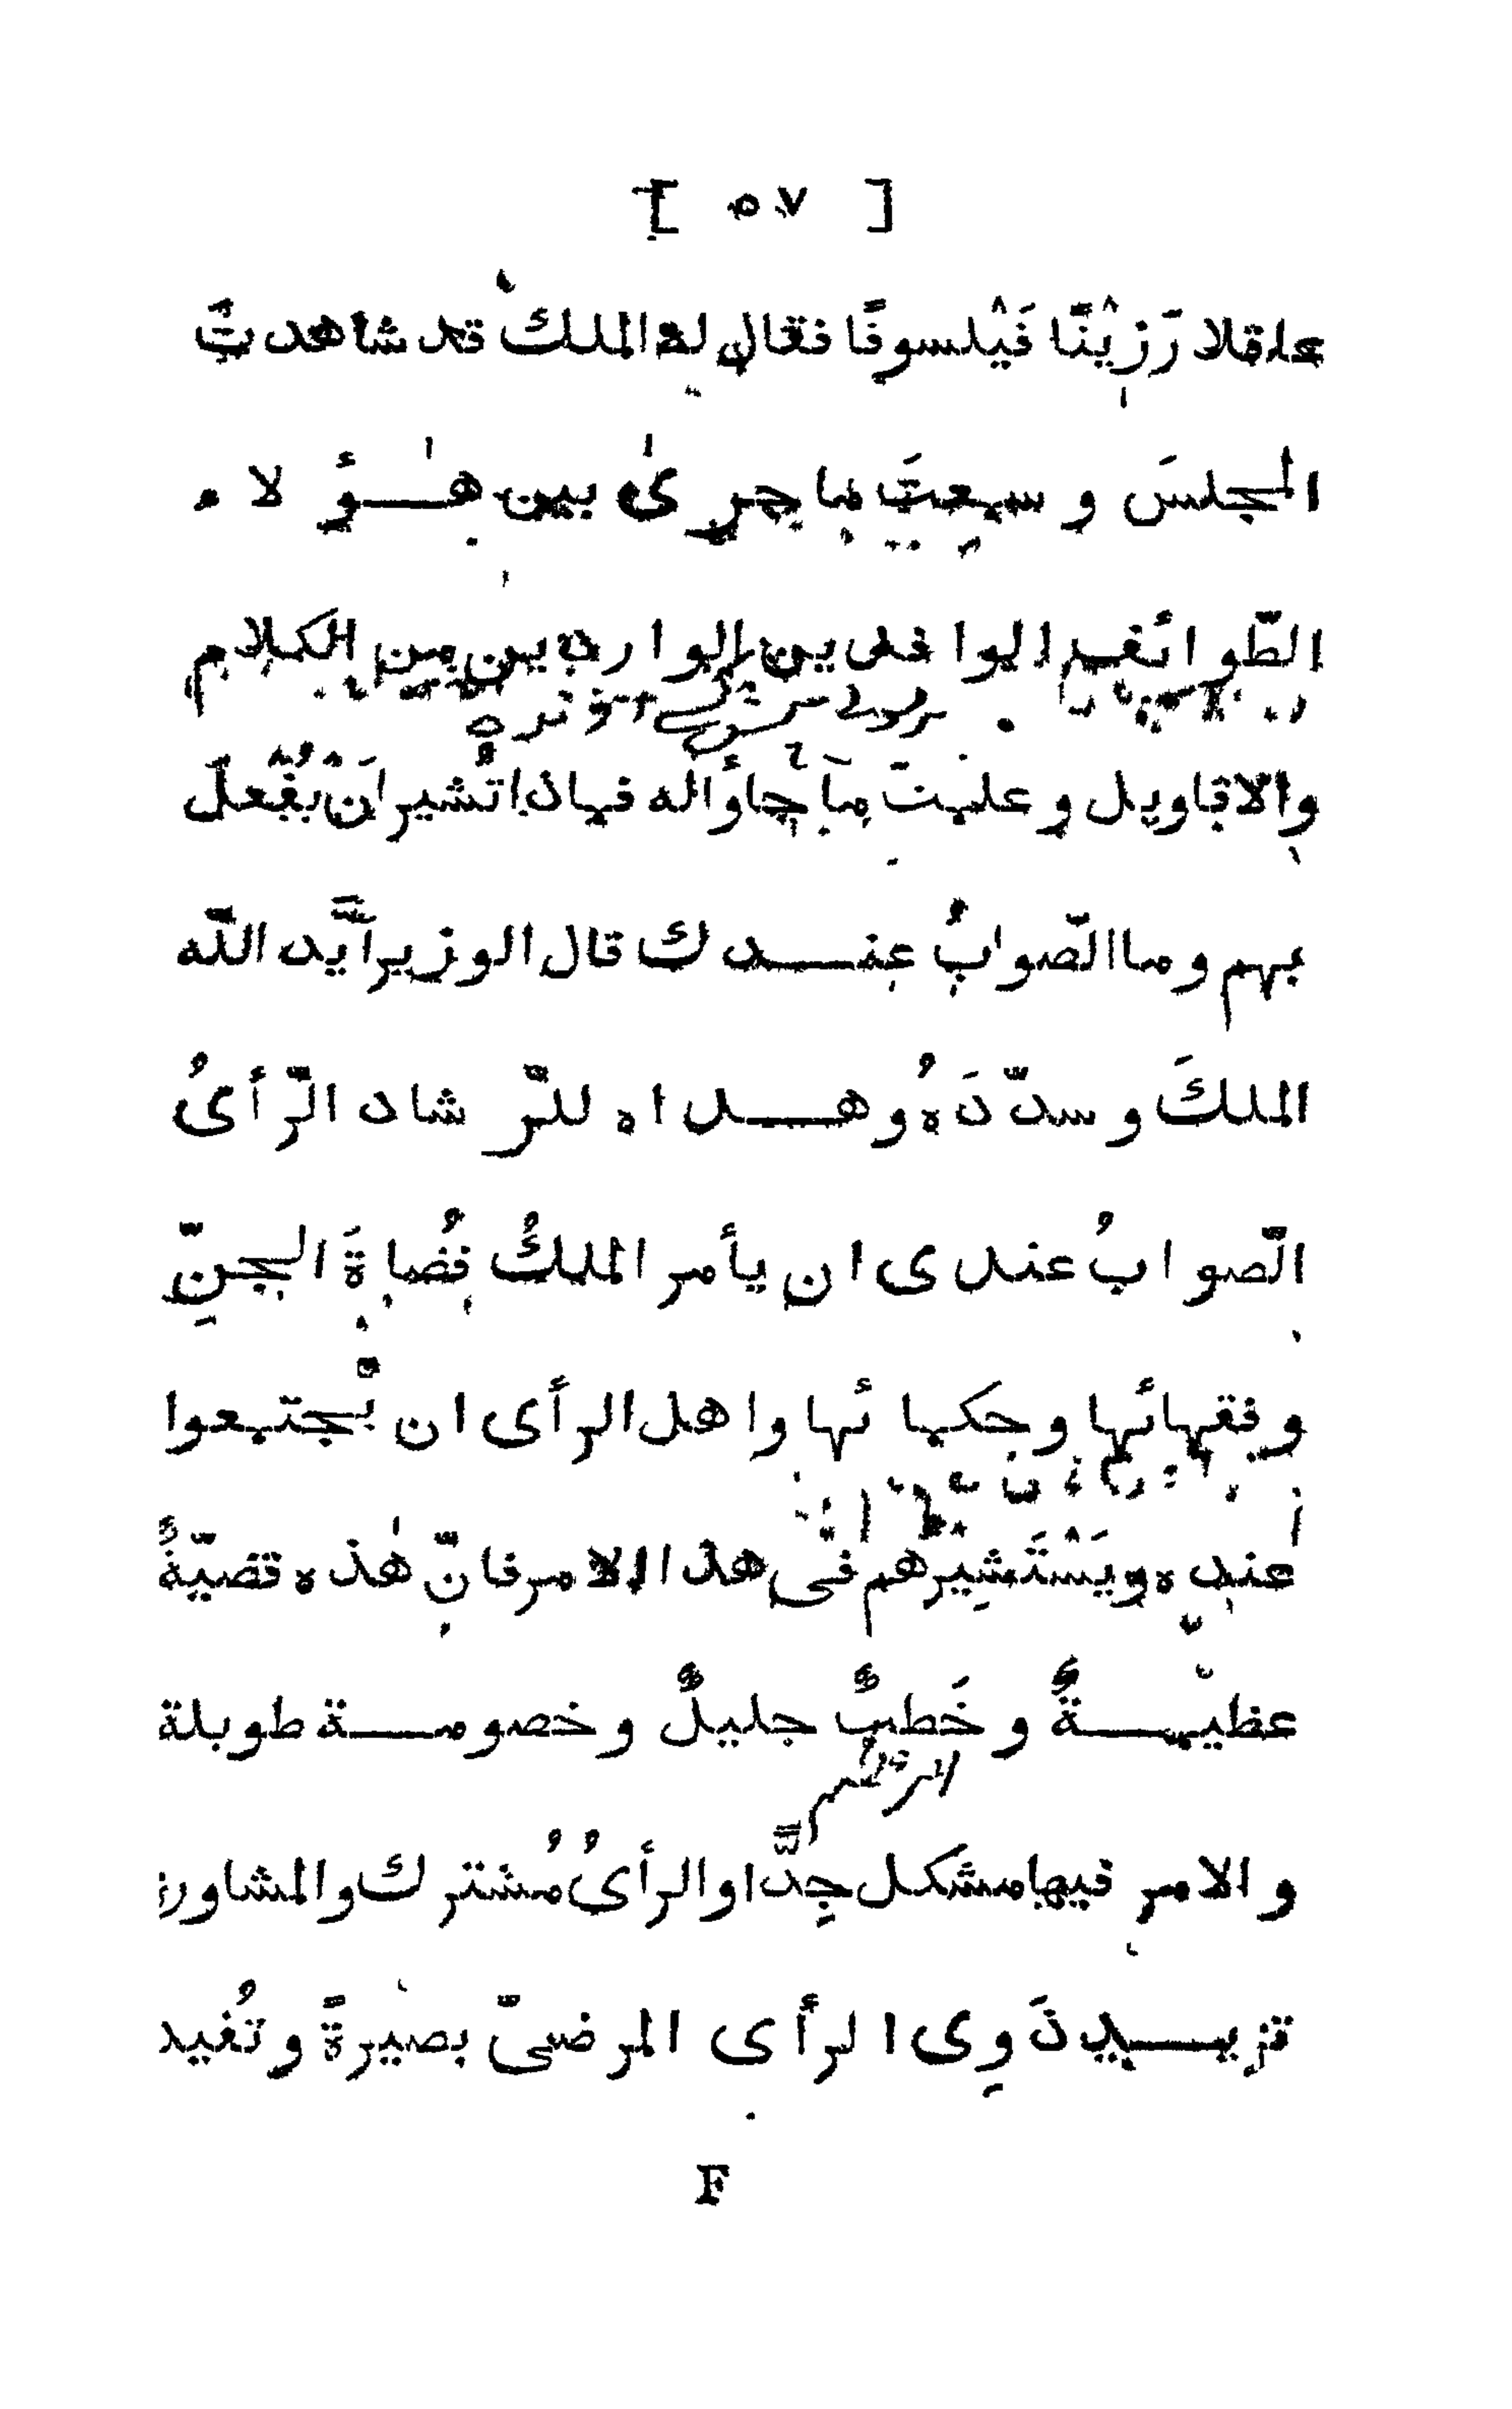 [ ٥٧ ]
عاقلا رَزِيْنًا فَيْلسوفًا فقال له الملك قد شاهدتَ
المجلسَ وسمِعتَ ما جرىٰ بين هٰؤلاء
الطّوائف الوافدين الواردين من الكلام
والاقاويل وعلمتَ ما جاؤا له فماذا تُشير اَنْ يُفْعلَ
بهم وما الصّوابُ عندك قال الوزير أيَّد اللّٰه
الملكَ وسدّدَهُ وهداه للرّشاد الرّأىُ
الصّوابُ عندى ان يأمر الملكُ قُضاةَ الجنِّ
وفقهائها وحكمائها واهل الرأى ان يْجتمعوا
عنده ويَسْتَشِيْرهم فى هذا الامر فانّ هٰذه قضيّةٌ
عظيمةٌ وخَطبٌ جليلٌ وخصومة طويلة
والامر فيها مشكل جِدًّا والرأىُ مُشترك والمشاورة
تزيد ذَوِى الرأى المرضىّ بصيرةً وتُفيد
F